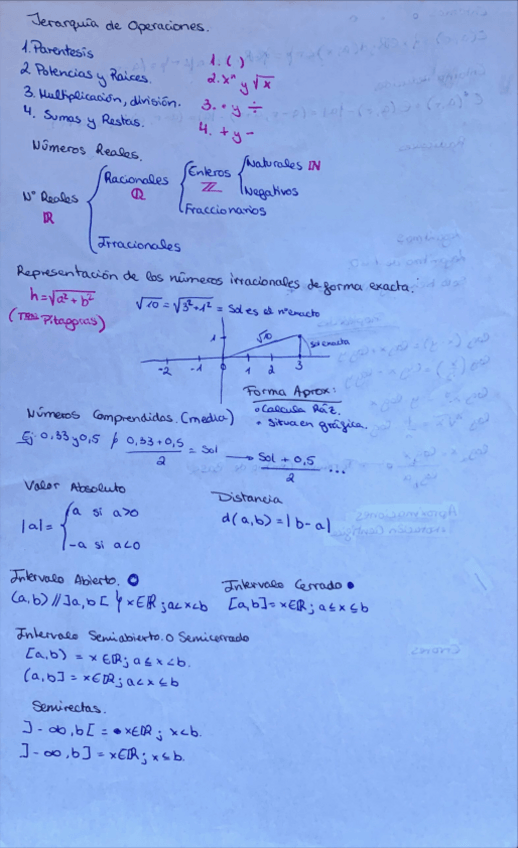 Jerarquía de Operaciones.
1. Parentesis 1. ( )
2. Potencias y Raices. 2. xⁿ y √x
3. Multiplicación, división. 3. · y ÷
4. Sumas y Restas. 4. + y -
Números Reales.
Nº Reales ℝ { Racionales ℚ { Enteros ℤ { Naturales ℕ
Negativos
Fraccionarios
Irracionales
Representación de los números irracionales de forma exacta.
h = √a² + b² √10 = √3² + 1² = Sol es el nº exacto
Pitagoras)
1 √10 sol exacta
-2 -1 0 1 2 3
Forma Aprox:
• Calcula Raíz.
• Situa en gráfica.
Números Comprendidos. (media)
Ej: 0,33 y 0,5 / (0,33 + 0,5)/2 = Sol → (Sol + 0,5)/2 ...
Valor Absoluto Distancia
|a| = { a si a>0 d(a,b) = |b-a|
-a si a<0
Intervalo Abierto. O Intervalo Cerrado •
(a,b) // ]a,b[ x∈ℝ; a<x<b [a,b] = x∈ℝ; a≤x≤b
Intervalo Semiabierto. O Semicerrado
[a,b) = x∈ℝ; a≤x<b.
(a,b] = x∈ℝ; a<x≤b
Semirectas.
]-∞,b[ = x∈ℝ; x<b.
]-∞,b] = x∈ℝ; x≤b.